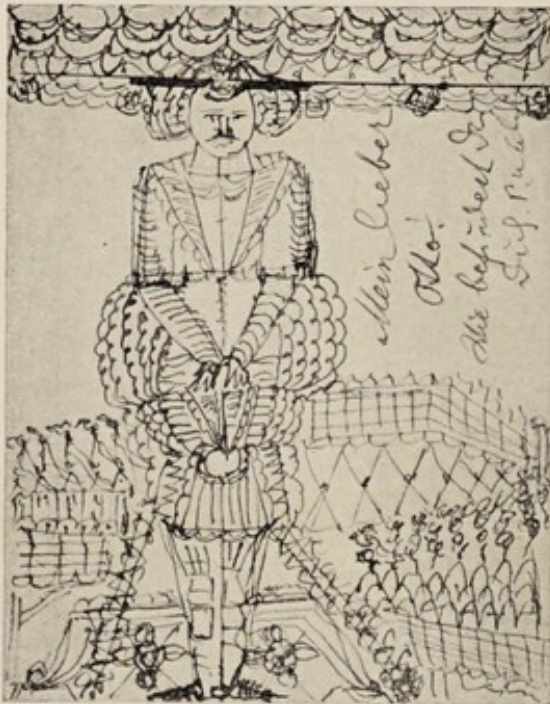 Mein lieber
Otto!
Wie befindest Du
Dich